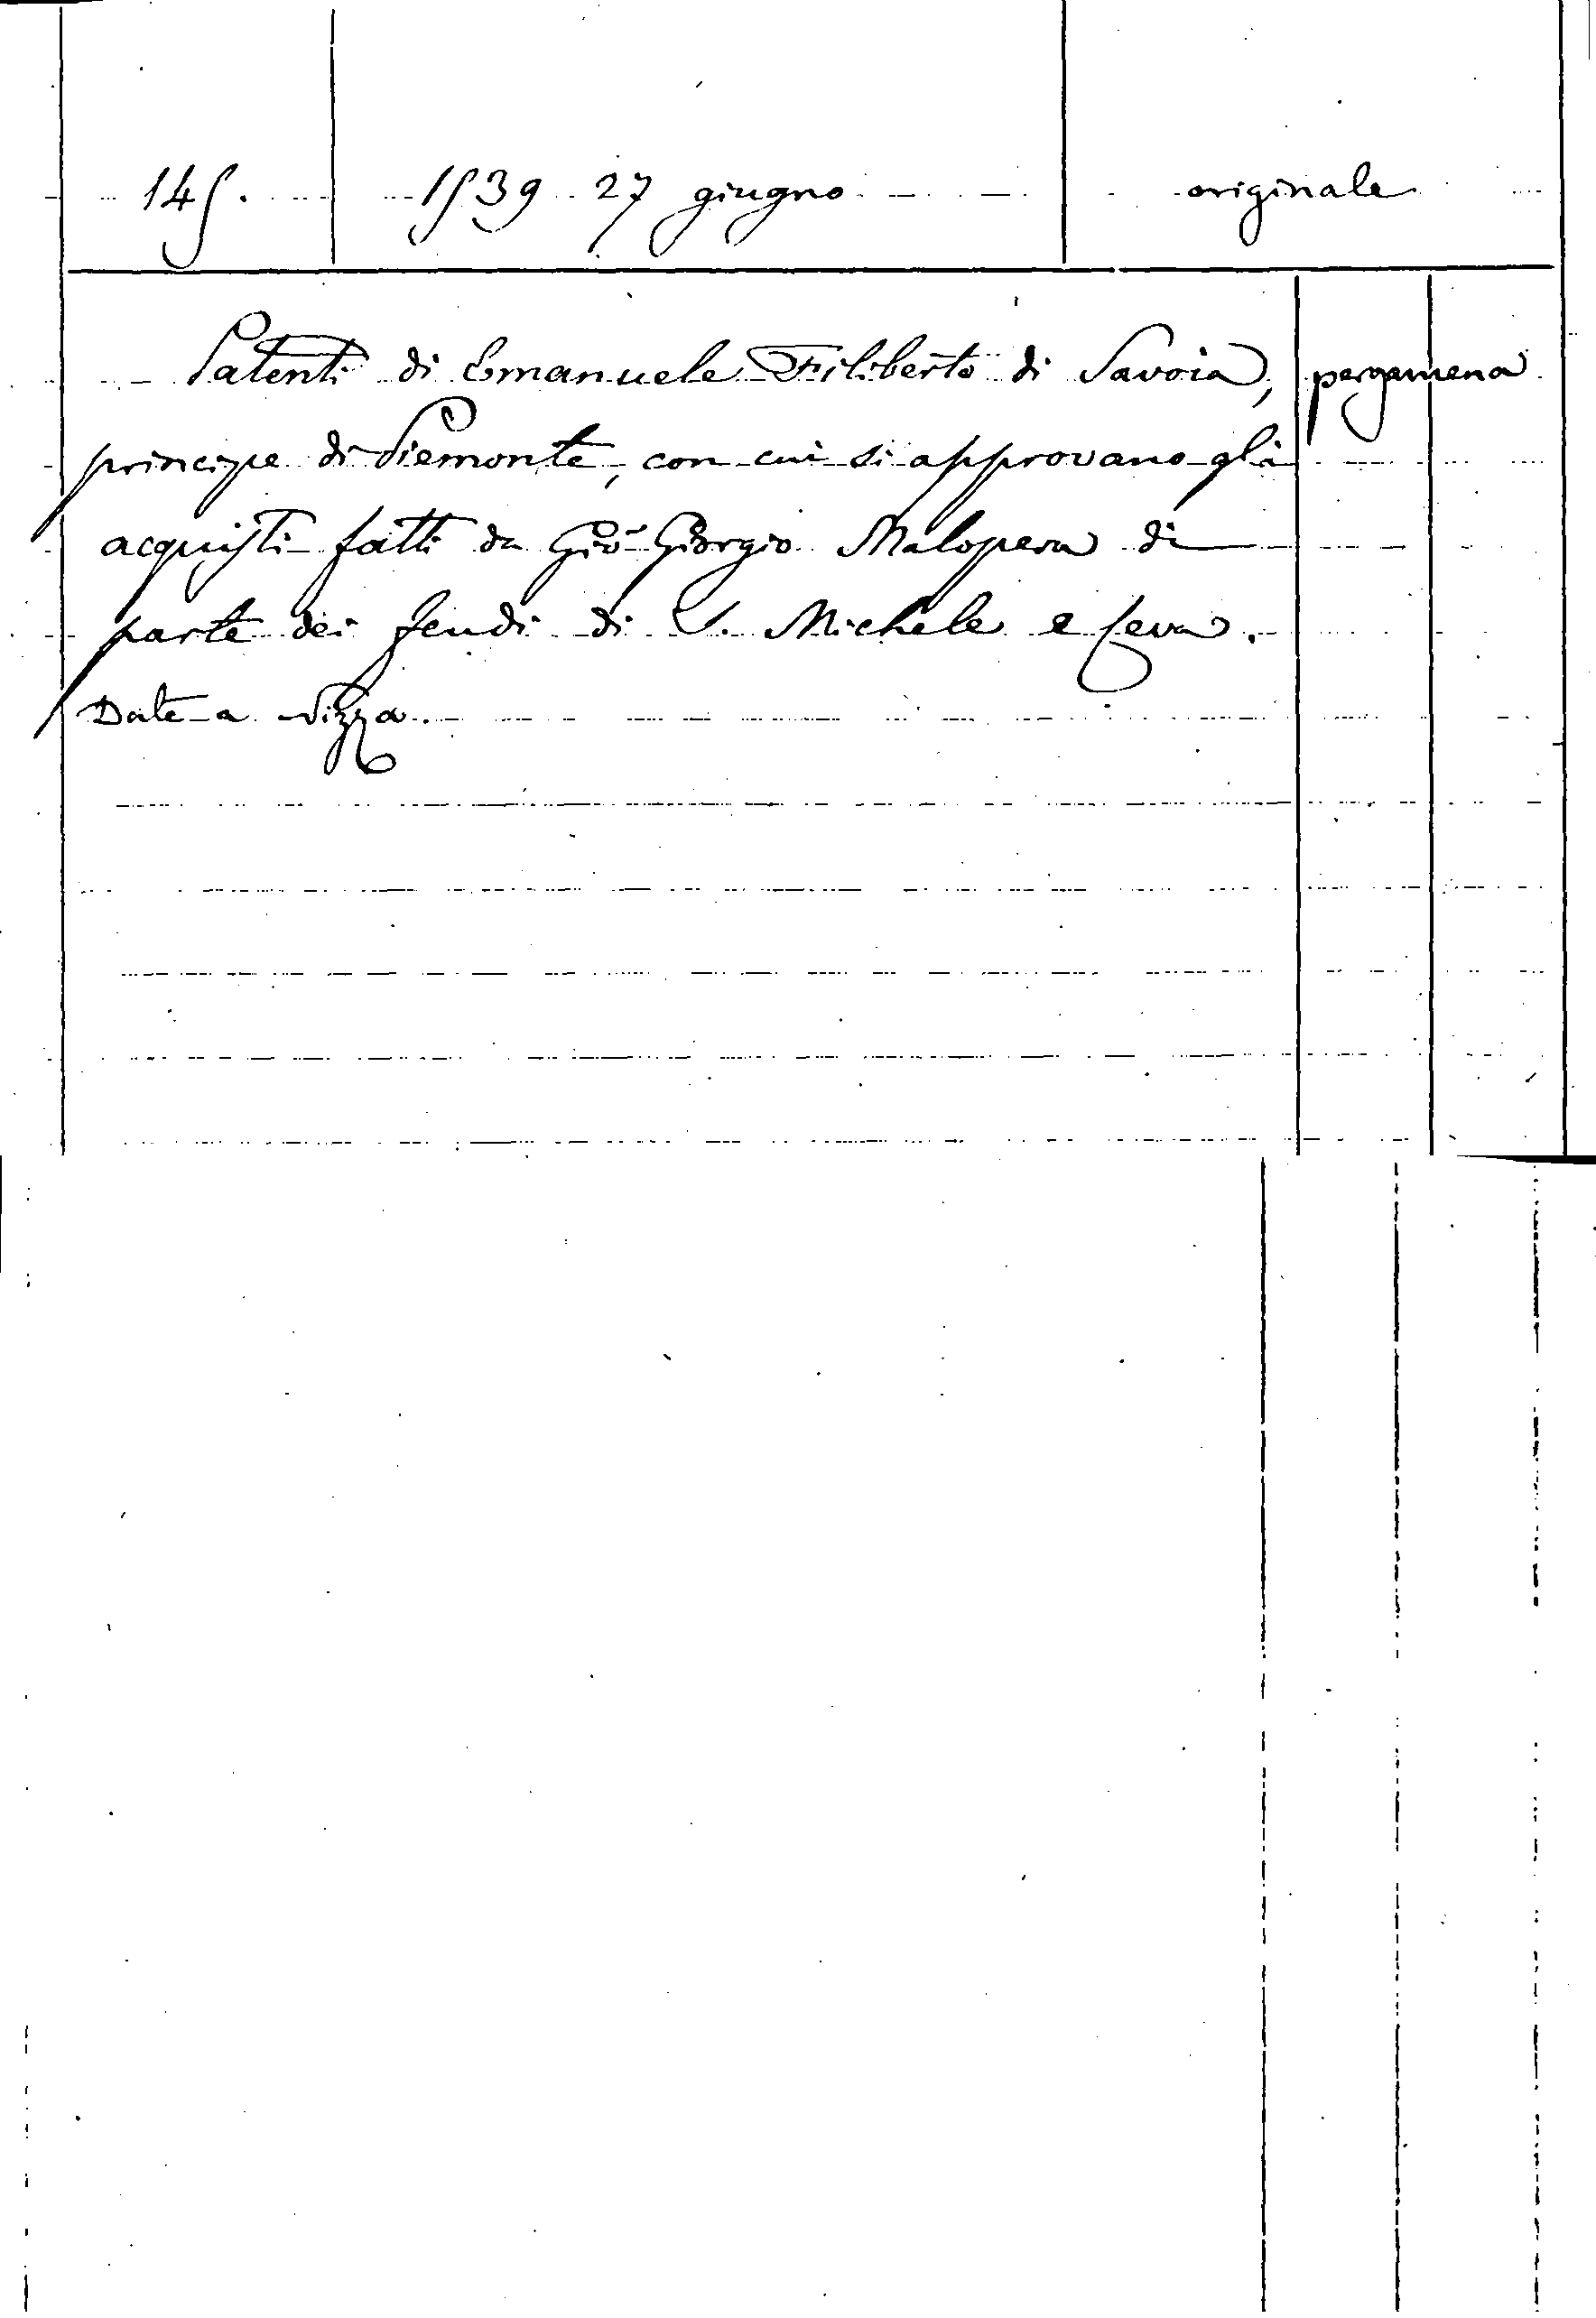 145. 1539 27 giugno originale
Patenti di Emanuele Filiberto di Savoia, pergamena
principe di Piemonte, con cui si approvano gli
acquisti fatti da Gio Giorgio Malopera di
parte dei feudi di S. Michele e Ceva.
Date a Nizza.